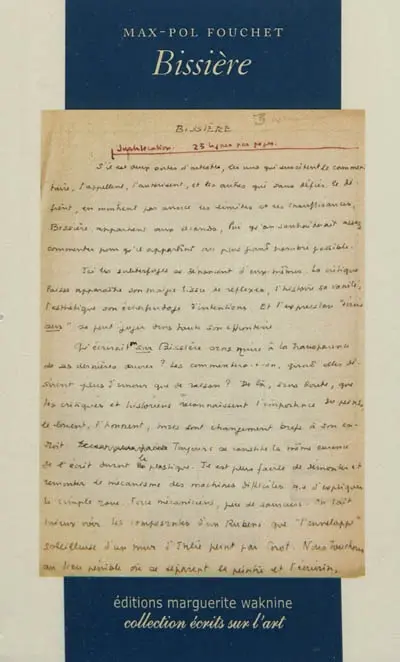 MAX-POL FOUCHET
Bissière
BISSIÈRE
Duplication. 25 lignes par page.
S'il est deux sortes d'artistes, les uns qui suscitent le commen
taire, l'appellent, l'autorisent, et les autres qui sans défier, le dé
fient, en montrent par avance les limites et les insuffisances,
Bissière appartient aux seconds,
commenter pour qu'il appartînt au plus grand nombre possible.
Ici les subterfuges se dénoncent d'eux-mêmes. La critique
laisse apparaître son maigre tissu de réflexes, l'histoire sa vanité,
l'esthétique son échafaudage d'intentions. Et l'expression "écrire
sur" se peut juger dans toute son effronterie
Qu'écrirait-on sur Bissière sans nuire à la transparence
de ses dernières œuvres ? Les commentera-t-on, quand elles dé
sirent plus d'amour que de raison ? De là, sans doute, que
les critiques et historiens reconnaissent l'importance du peintre,
le louent, l'honorent, mais sont étrangement brefs à son en
droit. Toujours se constate la même carence
de l'écrit devant le plastique. Il est plus facile de démonter et
remonter le mécanisme des machines difficiles que d'expliquer
la simple roue. Force mécaniciens, peu de sourciers. On sait
mieux voir les composantes d'un Rubens que "l'enveloppe"
soleilleuse d'un mur d'Italie peint par Corot. Nous touchons
au lieu pénible où se séparent le peintre et l'écrivain,
éditions marguerite waknine
collection écrits sur l'art